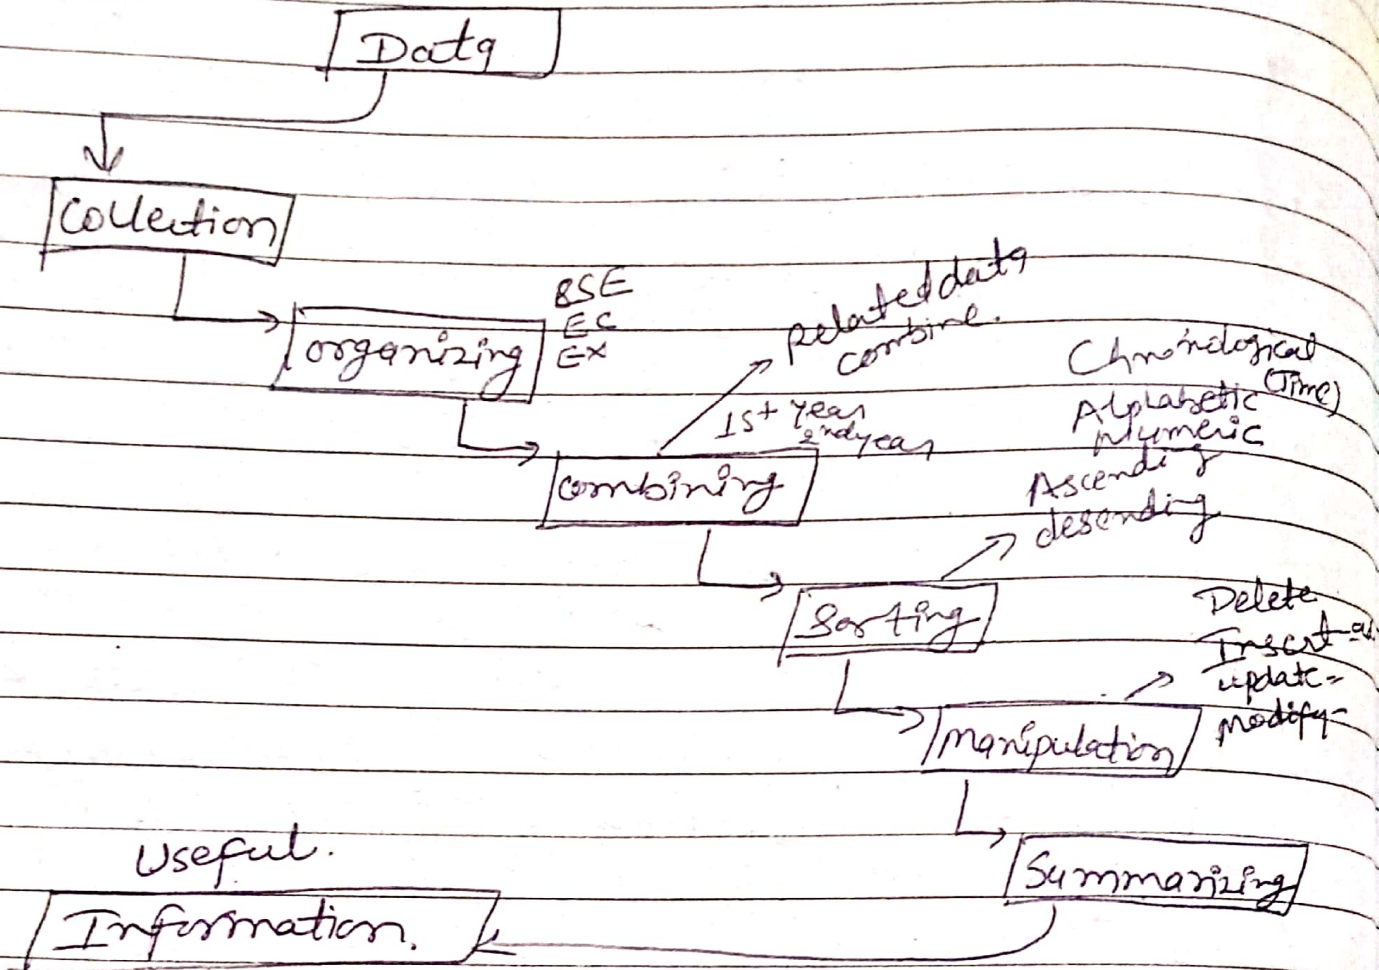 Data
Collection
organizing
BSE
EC
EX
Related data
combine.
1st year
2nd year
combining
Chronological
(Time)
Alphabetic
Numeric
Ascending
desending
Sorting
Delete
Insert
update-
modify-
manipulation
Summarizing
Useful.
Information.